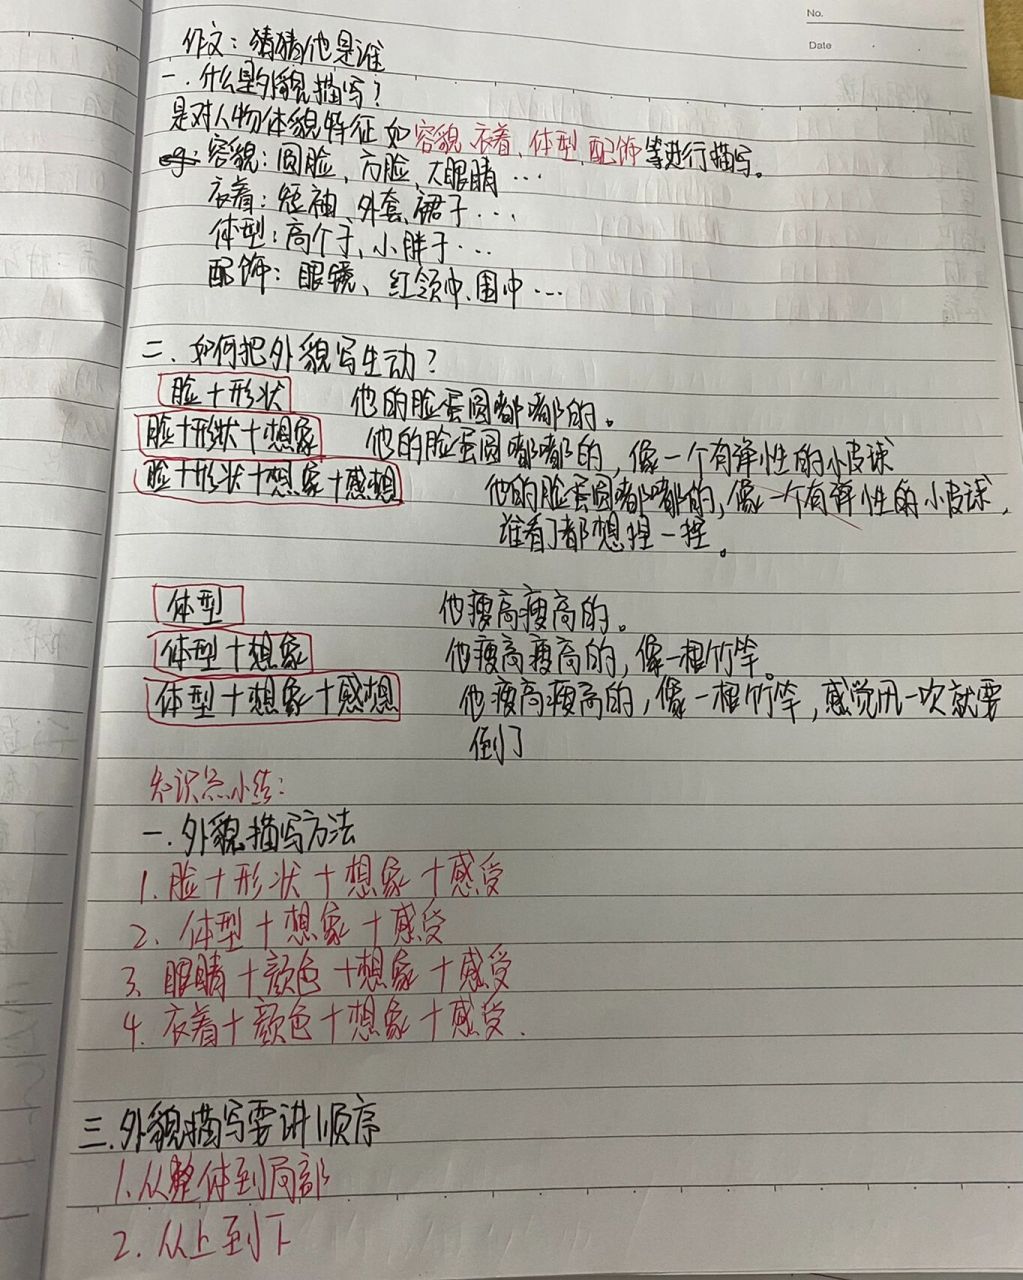 No.
Date
作文：猜猜他是谁
一.什么是外貌描写？
是对人物体貌特征如容貌、衣着、体型、配饰等进行描写。
eg：容貌：圆脸、方脸、大眼睛…
衣着：短袖、外套、裙子…
体型：高个子、小胖子…
配饰：眼镜、红领巾、围巾…
二.如何把外貌写生动？
脸+形状 他的脸蛋圆嘟嘟的。
脸+形状+想象 他的脸蛋圆嘟嘟的，像一个有弹性的小皮球
脸+形状+想象+感想 他的脸蛋圆嘟嘟的，像一个有弹性的小皮球，
谁看了都想捏一捏。
体型 他瘦高瘦高的。
体型+想象 他瘦高瘦高的，像一根竹竿。
体型+想象+感想 他瘦高瘦高的，像一根竹竿，感觉一次就要
倒了
知识点小结：
一.外貌描写方法
1.脸+形状+想象+感受
2.体型+想象+感受
3.眼睛+颜色+想象+感受
4.衣着+颜色+想象+感受.
三.外貌描写要讲顺序
1.从整体到局部
2.从上到下